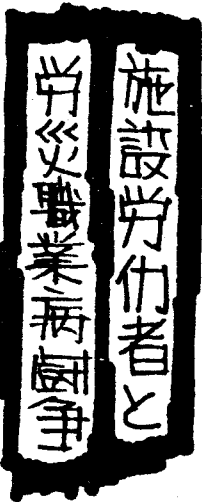 施設労仂者と
労災職業病闘争